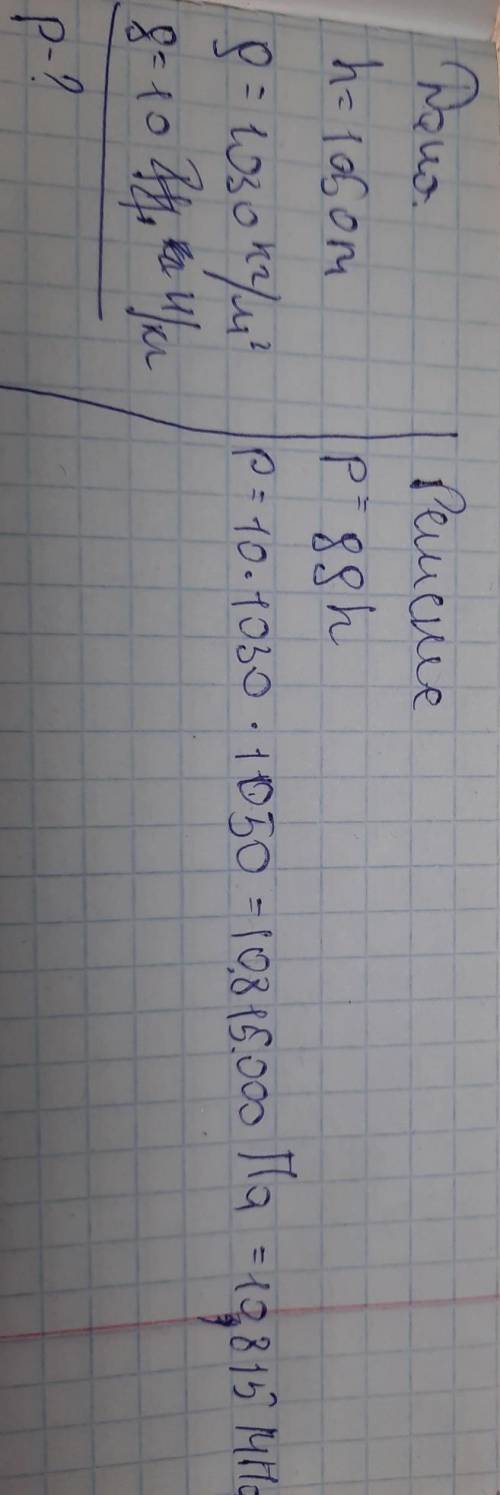 Дано.
h = 1050 м
ρ = 1030 кг/м²
g = 10 Н/кг
P - ?
Решение
P = gρh
P = 10 · 1030 · 1050 = 10.815.000 Па = 10,815 МПа